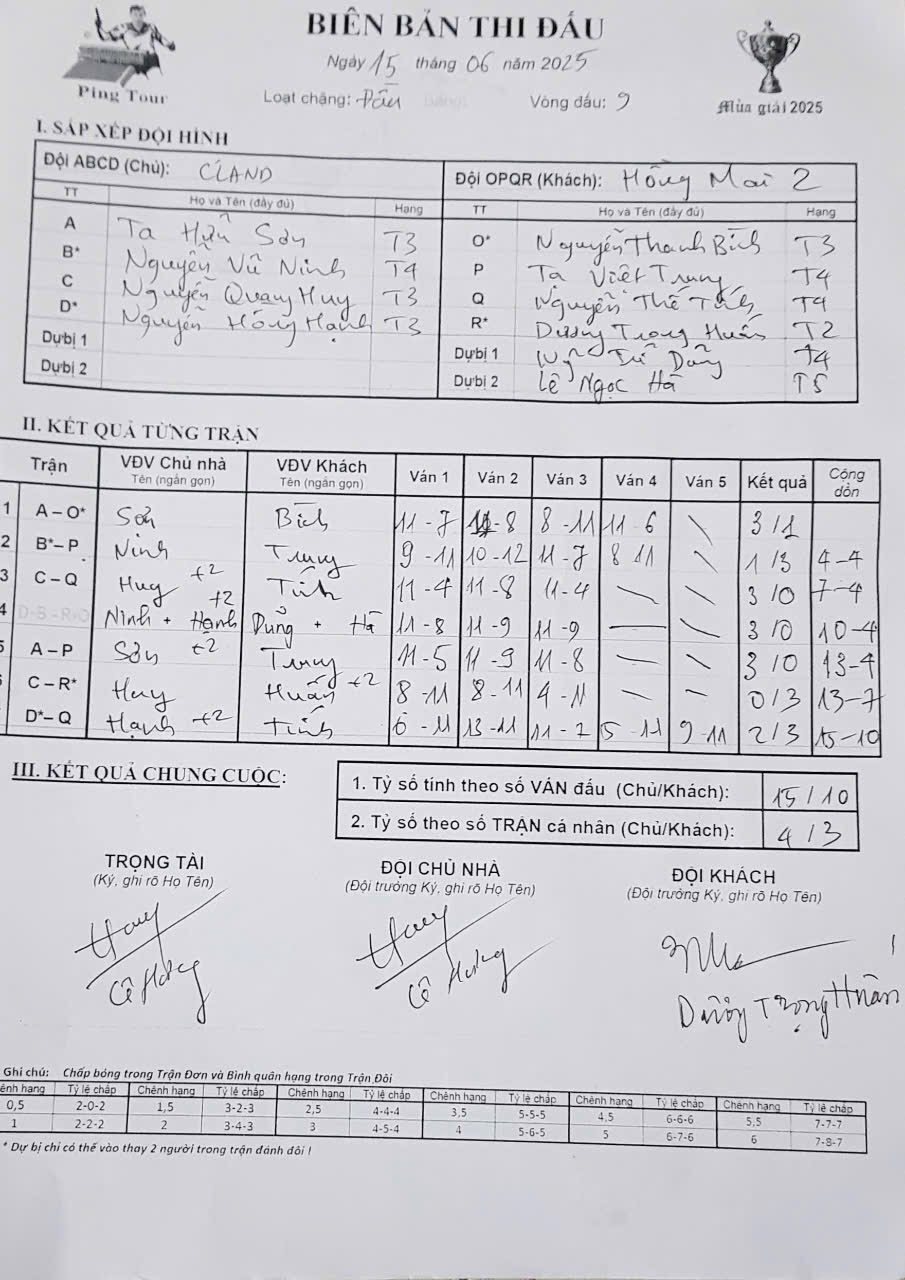 BIÊN BẢN THI ĐẤU
Ngày 15 tháng 06 năm 2025
Ping Tour
Loạt chặng: Đầu Vòng đấu: 9
Mùa giải 2025
I. SẮP XẾP ĐỘI HÌNH
Đội ABCD (Chủ): CLAND Đội OPQR (Khách): Hồng Mai 2
TT Họ và Tên (đầy đủ) Hạng TT Họ và Tên (đầy đủ) Hạng
A Tạ Hữu Sơn T3 O* Nguyễn Thanh Bích T3
B* Nguyễn Vũ Ninh T4 P Tạ Việt Trung T4
C Nguyễn Quang Huy T3 Q Nguyễn Thế T4
D* Nguyễn Hồng Hạnh T3 R* Dương Trọng Huấn T2
Dự bị 1 Dự bị 1 Dũng T4
Dự bị 2 Dự bị 2 Lê Ngọc Hà T5
II. KẾT QUẢ TỪNG TRẬN
Trận VĐV Chủ nhà Tên (ngắn gọn) VĐV Khách Tên (ngắn gọn) Ván 1 Ván 2 Ván 3 Ván 4 Ván 5 Kết quả Cộng dồn
1 A – O* Sơn Bích 11-7 11-8 8-11 11-6 \ 3/1
2 B*– P Ninh Trung 9-11 10-12 11-7 8 11 \ 1/3 4-4
3 C – Q Huy +2 11-4 11-8 11-4 — \ 3/0 7-4
4 Ninh + Hạnh +2 Dũng + Hà 11-8 11-9 11-9 — \ 3/0 10-4
A – P Sơn +2 Trung 11-5 11-9 11-8 — \ 3/0 13-4
C – R* Huy Huấn +2 8-11 8-11 4-11 \ – 0/3 13-7
D*– Q Hạnh +2 6-11 13-11 11-7 5-11 9-11 2/3 15-10
III. KẾT QUẢ CHUNG CUỘC:
1. Tỷ số tính theo số VÁN đấu (Chủ/Khách): 15/10
2. Tỷ số theo số TRẬN cá nhân (Chủ/Khách): 4/3
TRỌNG TÀI ĐỘI CHỦ NHÀ ĐỘI KHÁCH
(Ký, ghi rõ Họ Tên) (Đội trưởng Ký, ghi rõ Họ Tên) (Đội trưởng Ký, ghi rõ Họ Tên)
Dương Trọng Huấn
Ghi chú: Chấp bóng trong Trận Đơn và Bình quân hạng trong Trận Đôi
ênh hạng Tỷ lệ chấp Chênh hạng Tỷ lệ chấp Chênh hạng Tỷ lệ chấp Chênh hạng Tỷ lệ chấp Chênh hạng Tỷ lệ chấp Chênh hạng Tỷ lệ chấp
0,5 2-0-2 1,5 3-2-3 2,5 4-4-4 3,5 5-5-5 4,5 6-6-6 5,5 7-7-7
1 2-2-2 2 3-4-3 3 4-5-4 4 5-6-5 5 6-7-6 6 7-8-7
* Dự bị chỉ có thể vào thay 2 người trong trận đánh đôi !